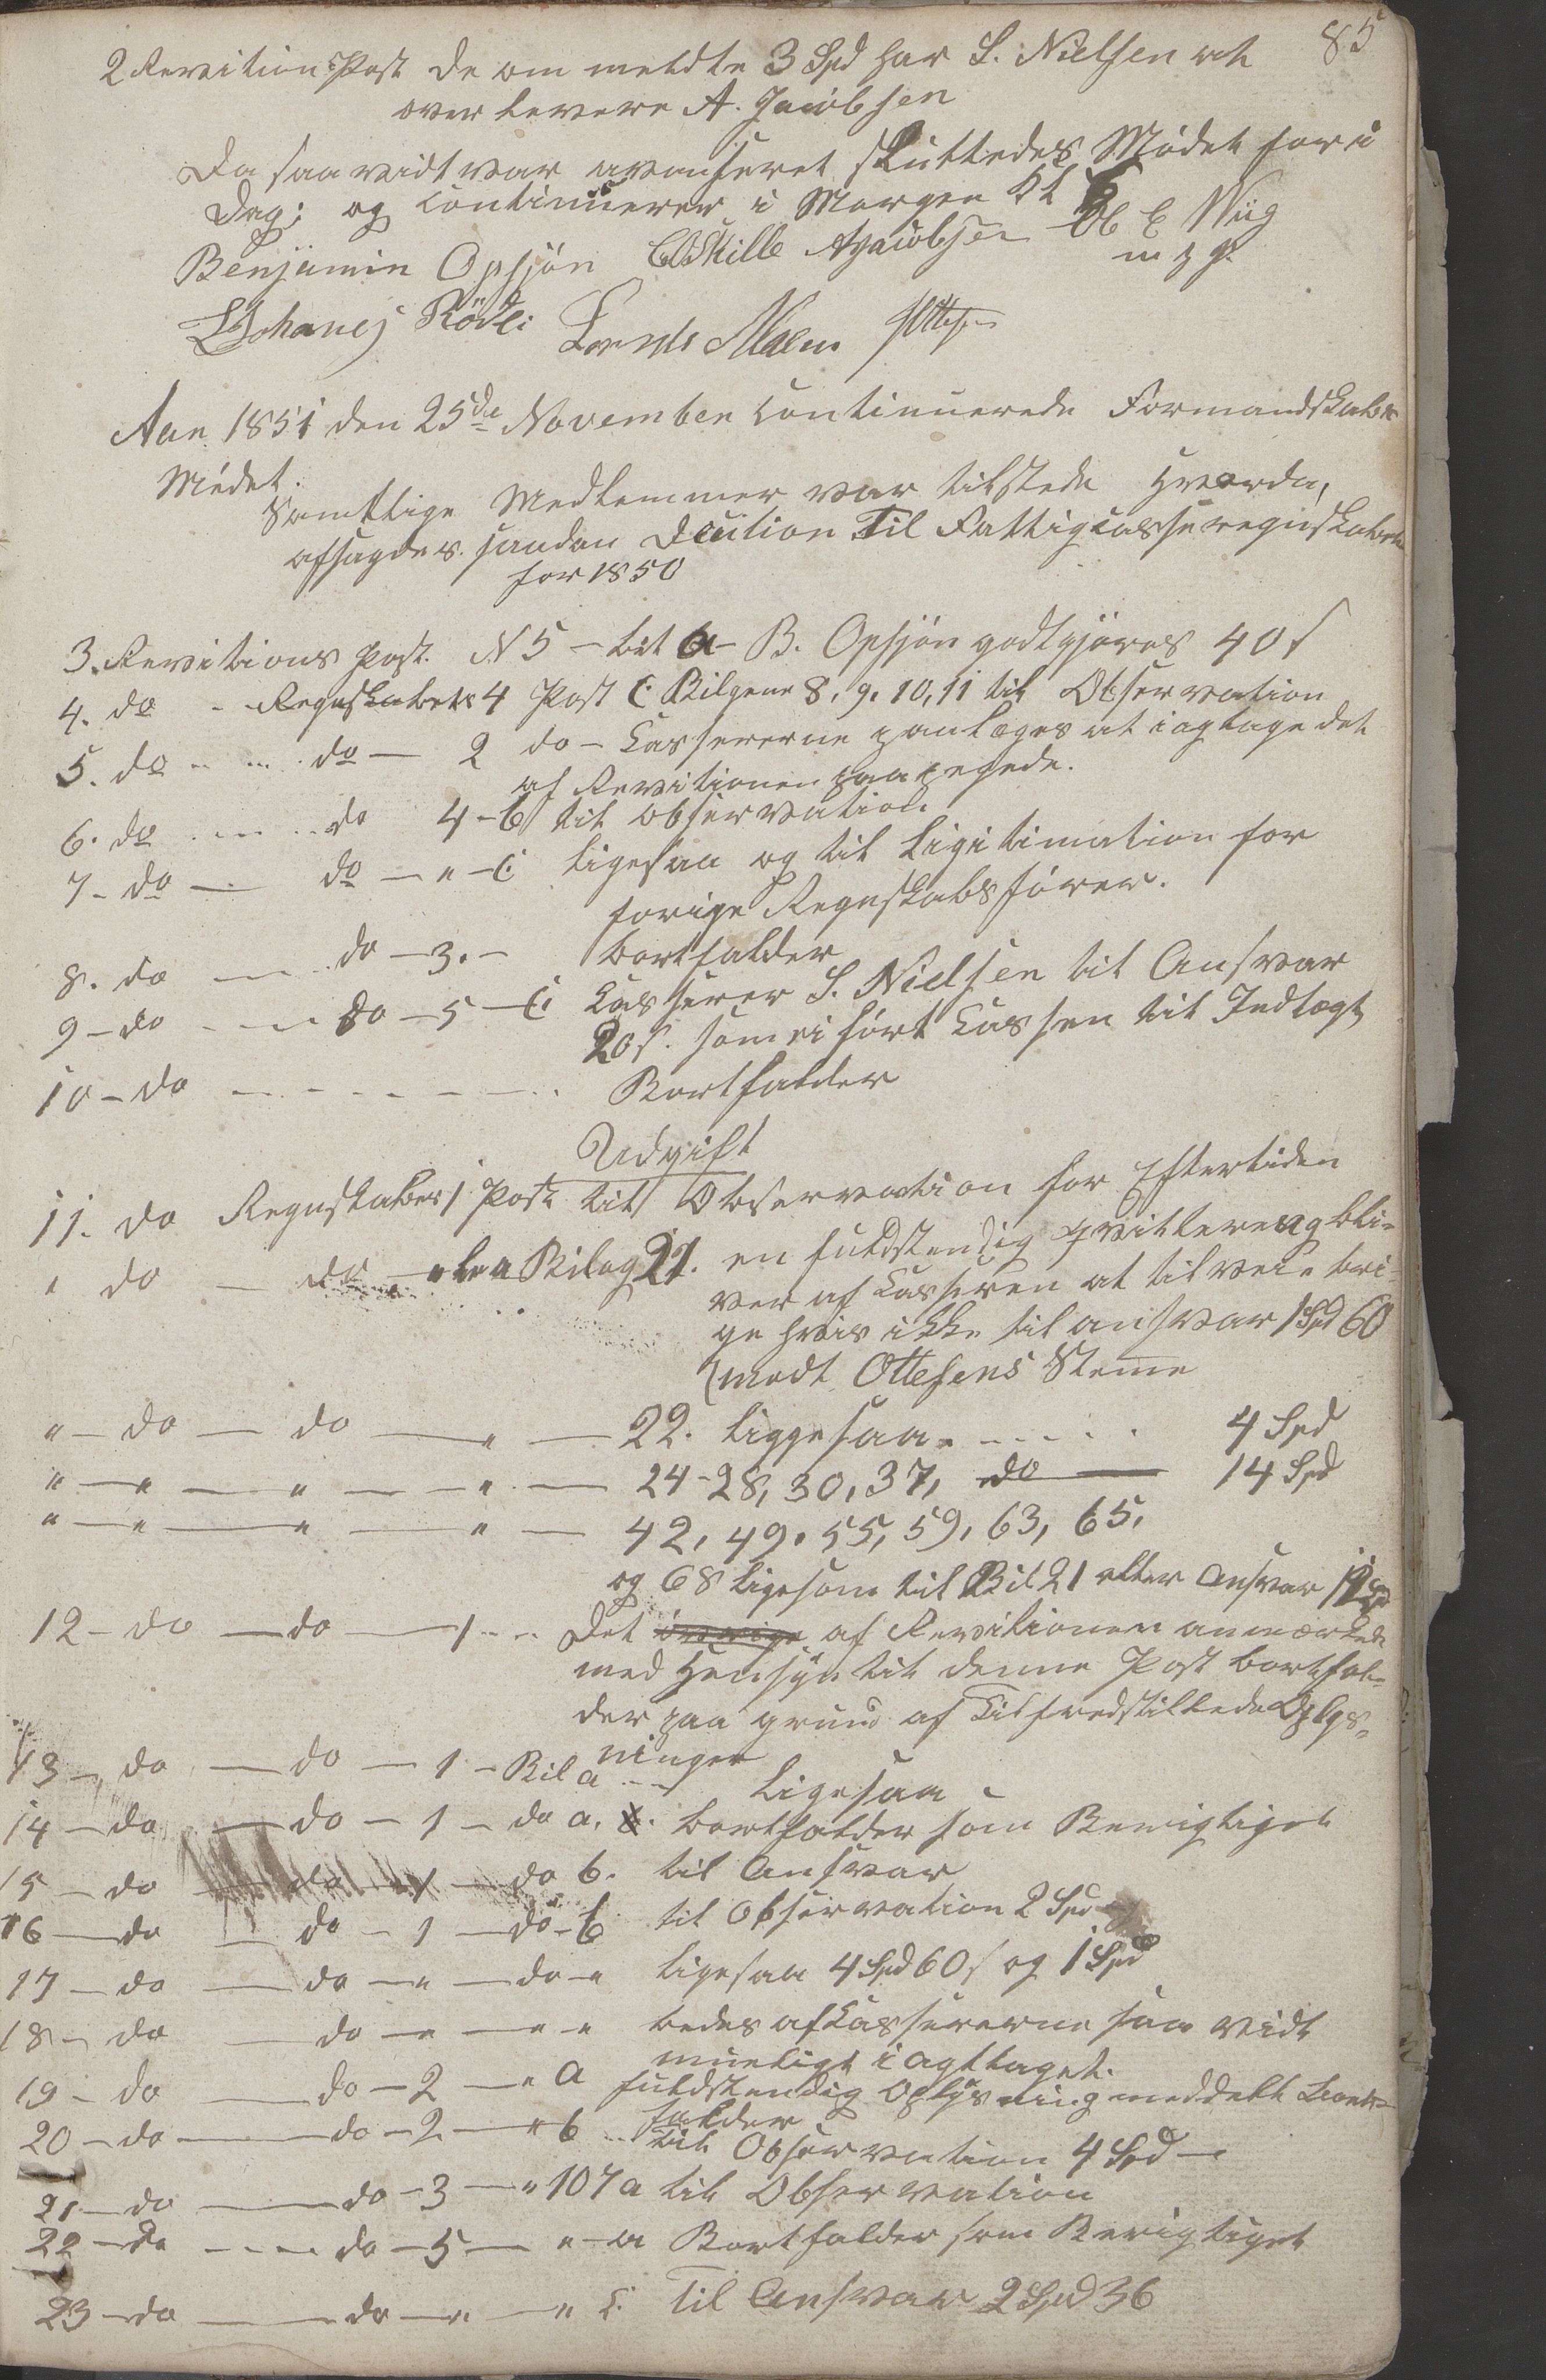 85
2 Revition Post de om meldte 3 Spd har S. Nielsen at
over levere A. Jacobsen
Da saa vidt var avanseret sluttedes Mödet for i
Dag; og Continuerer i Morgen Kl
Benjamin Opsjön AJacobsen Ole E Wiig
m p P.
Johanes Rödli Lornts Malm Ottesen
Aar 1851 den 25de November Continuerede Formandskabs
Mödet.
Samtlige Medlemmer var tilstede Hvorda,
afsagdes saadan Decition Til Fattigcasseregnskabet
for 1850
3. Revitions Post. N 5 - lit a - B. Opsjön godtgjöres 40 s
4. do - Regnskabets 4 Post C. Bilgene 8, 9. 10, 11 til Observation
5. do - ... do - 2 do - Cassererne paalæges at iagtage det
af Revitionen paapegede.
6. do ... do 4 - b til observation
7 - do - do - " - C ligesaa og til Ligitimation for
forige Regnskabsförer.
8. do - do - 3. - bortfalder
9 - do - do - 5 - C Casserer S. Nielsen til Ansvar
20 s. som ei fört Cassen til Indtægt
10 - do - - - - - Bortfalder
Udgift
11. do Regnskabes 1 Post til Observation for Eftertiden
" do - do - " Bilag 21. en fuldstendig Qvittereng bli-
ver af Casseren at tilveie bri-
ge hvis ikke til ansvar 1 Spd 60
(modt Ottesens Steme
" - do - do - " - 22. liggesaa - - - - 4 Spd
" - " - " - " - 24 - 28, 30, 37, do - 14 Spd
" - " - " - " - 42, 49. 55, 59, 63, 65,
og 68 ligesom til Bil 21 eller Ansvar
12 - do - do - 1 - - Det övrige af Revitionen anmærkede
med Hensyn til denne Post bortfal-
der paa grund af Tilfredstillede Oplys-
ninger
13 - do - do - 1 - Bil a - - Ligesaa -
14 - do - do - 1 - do a. bortfalder som Berigtiget
15 - do - do - 1 - do b. til Ansvar
16 - do - do - 1 - do - b til Observation 2 Spd -
17 - do - do - " - do - " ligesaa 4 Spd 60 s og 1 Spd
18 - do - do - " - " - " bedes af Cassererne saa vidt
mueligt iagttaget.
19 - do - do - 2 - " a fuldstendig Oplysning meddelt bort-
falder
20 - do - do - 2 - " b - til Observation 4 Spd -
21 - do - do - 3 - " 107 a til Observation
22 - do - - - do - 5 - " - a Bortfalder som Berigtiget
23 - do - do - " - " C. Til Ansvar 2 Spd 36